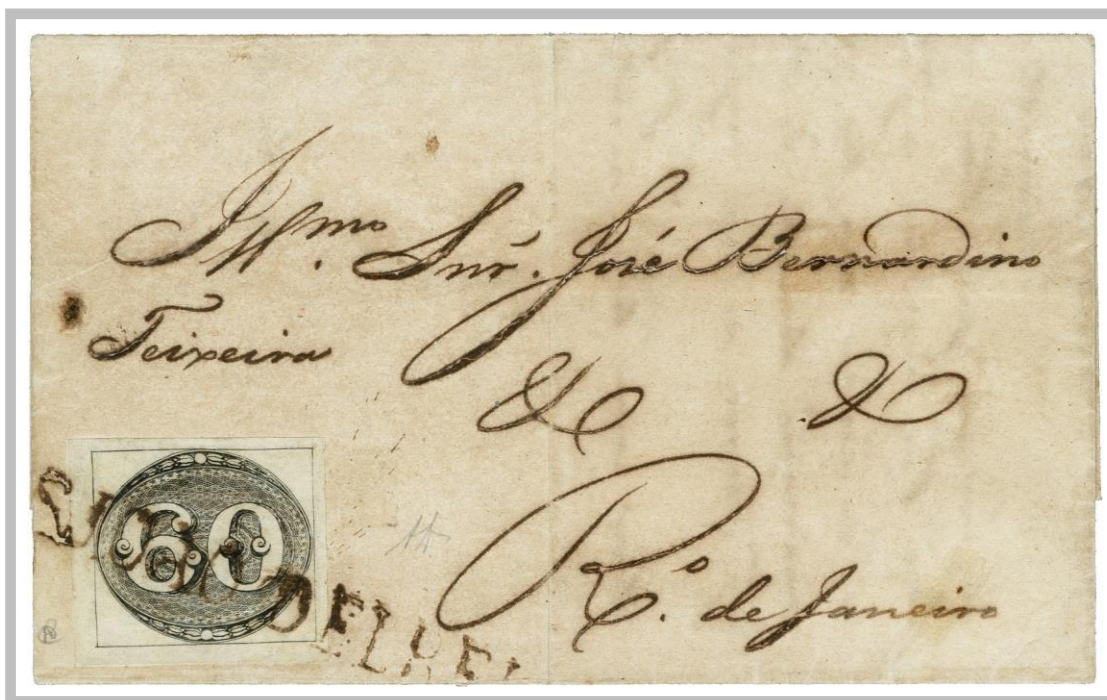 Illmo. Snr. José Bernardino
Teixeira
& &
Ro. de Janeiro
60
DELREI